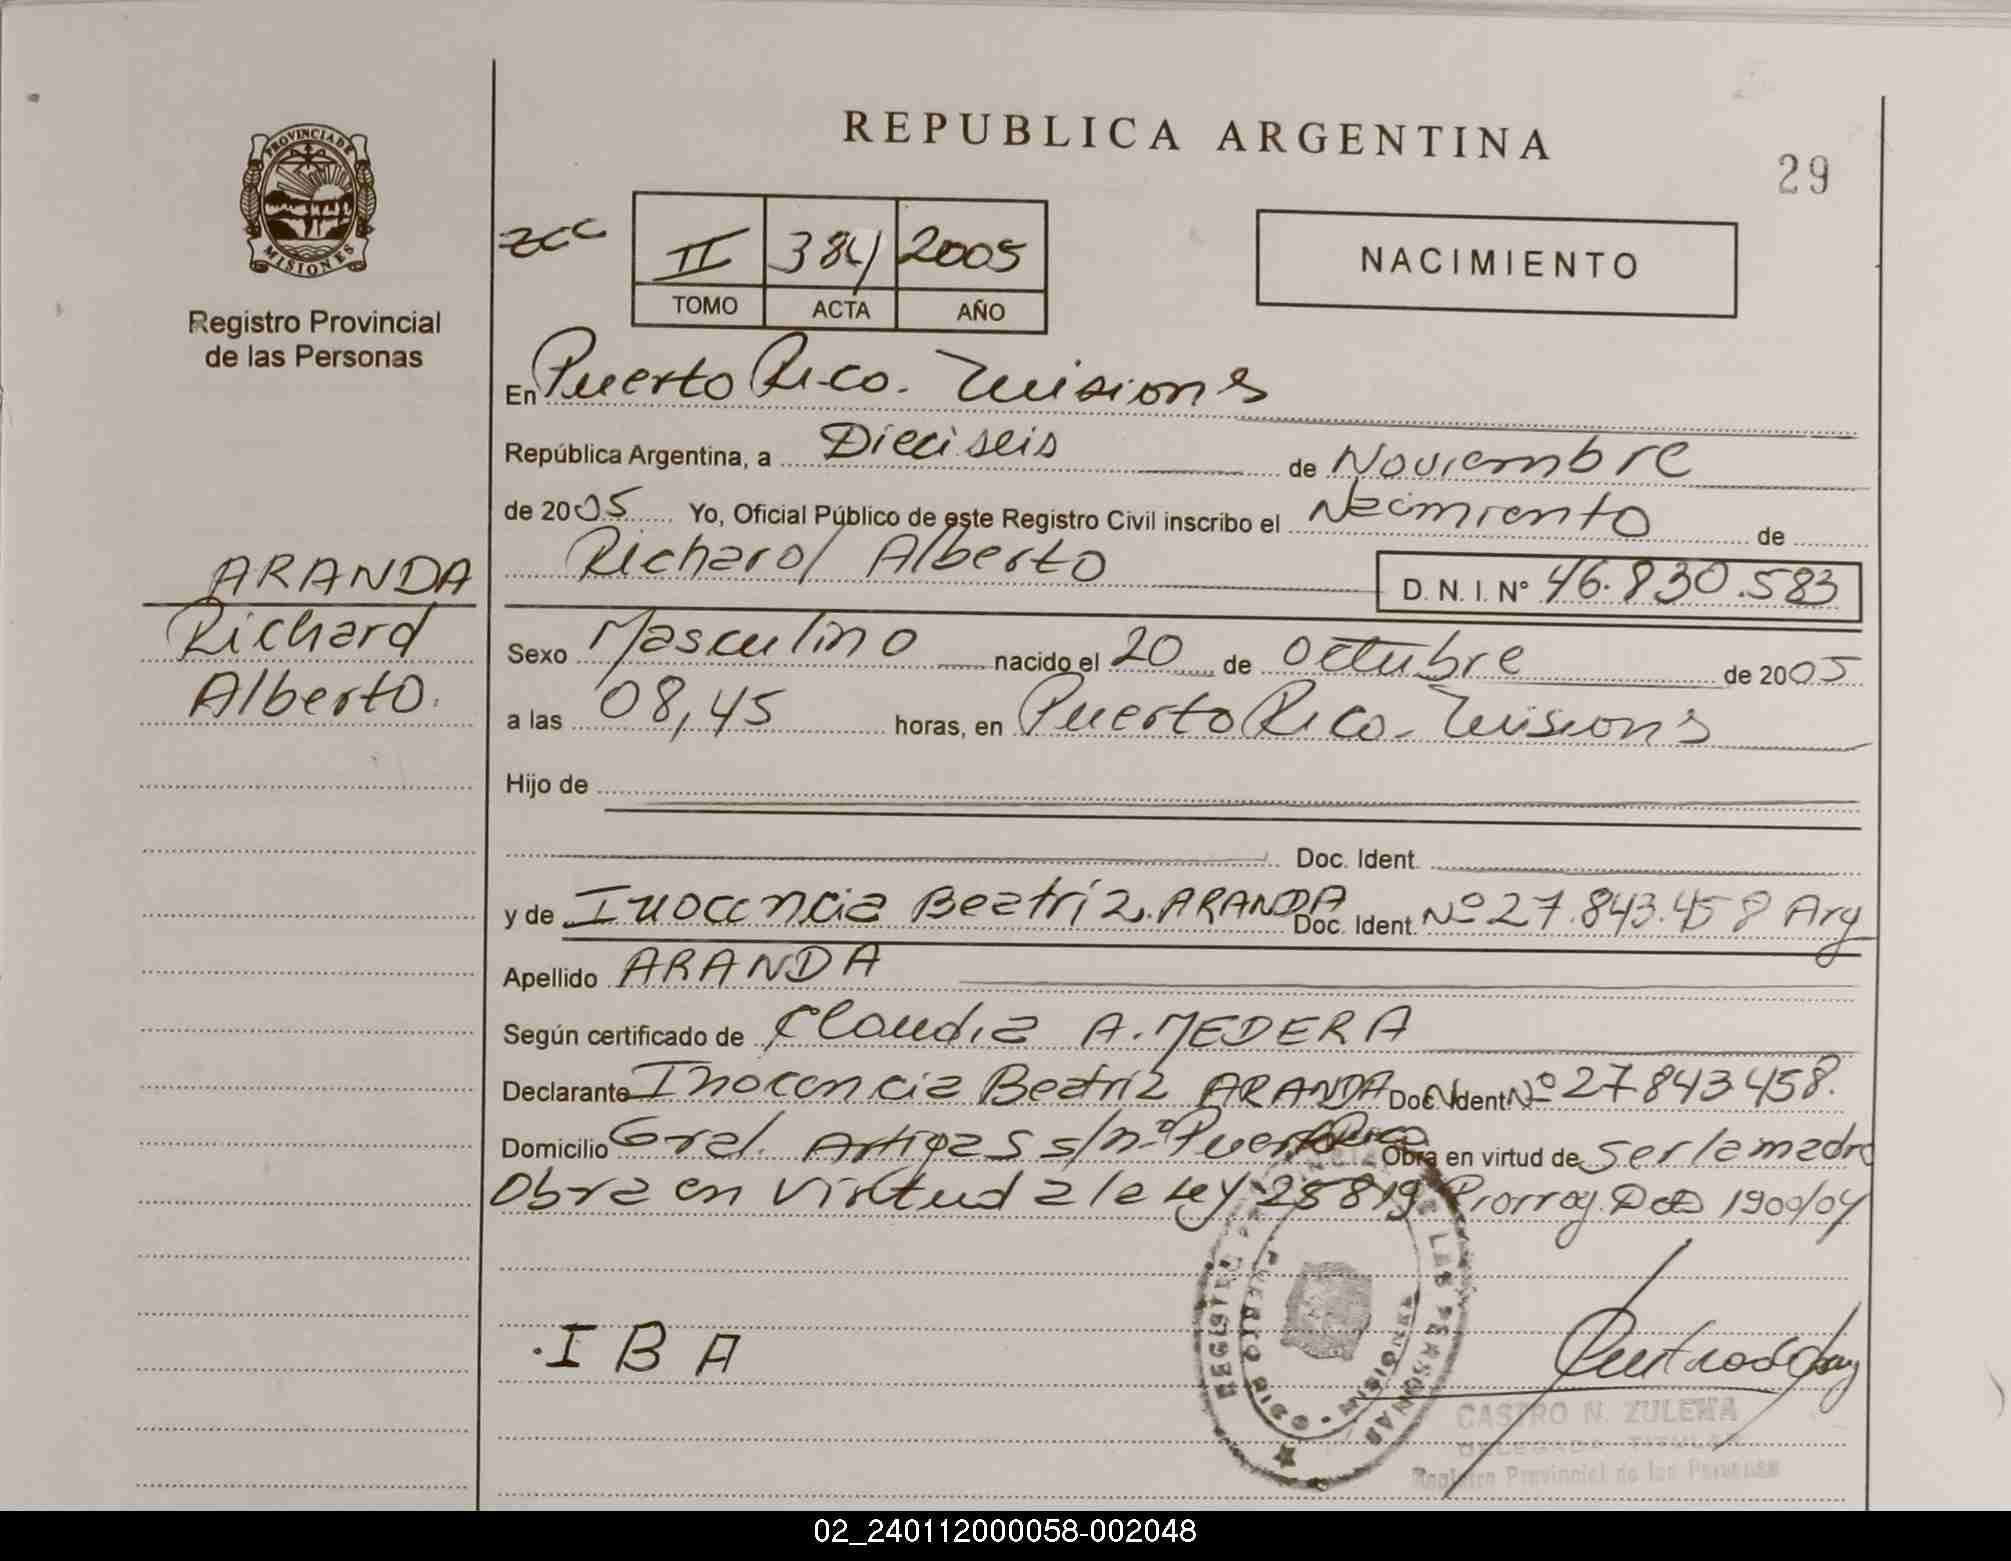 REPUBLICA ARGENTINA
29
PROVINCIA DE MISIONES
Registro Provincial
de las Personas
II 384 2005
TOMO ACTA AÑO
NACIMIENTO
En Puerto Rico. Misiones
República Argentina, a Dieciseis de Noviembre
de 2005 Yo, Oficial Público de este Registro Civil inscribo el Nacimiento de
Richard Alberto D. N. I. Nº 46.830.583
ARANDA
Richard
Alberto.
Sexo Masculino nacido el 20 de octubre de 2005
a las 08,45 horas, en Puerto Rico. Misiones
Hijo de
Doc. Ident.
y de Inocencia Beatríz ARANDA Doc. Ident. Nº 27.843.458 Arg
Apellido ARANDA
Según certificado de Claudia A. MEDERA
Declarante Inocencia Beatríz ARANDA Doc. Ident Nº 27843458.
Domicilio Gral. Artigas s/nº Puerto Rico Obra en virtud de ser la madre
Obra en virtud a la Ley 25819 Prorrog. Dto 1900/04
REGISTRO PROVINCIAL DE LAS PERSONAS
PUERTO RICO - MISIONES
. I B A
CASTRO N. ZULEMA
DELEGADA TITULAR
Registro Provincial de las Personas
02_240112000058-002048